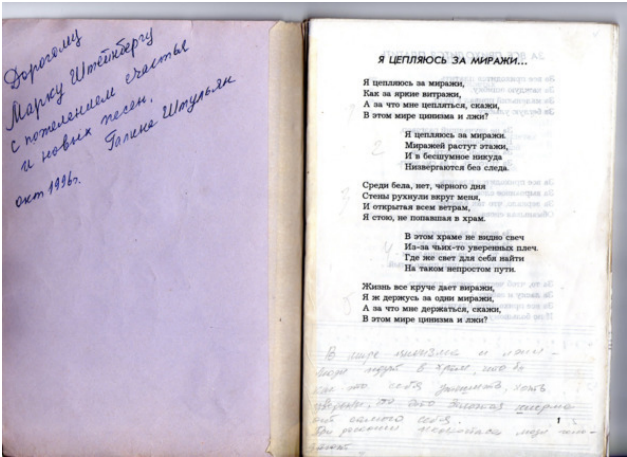 Дорогому
Марку Штейнбергу
с пожеланием счастья
и новых песен.
Галина Штульян
окт 1996г.
Я ЦЕПЛЯЮСЬ ЗА МИРАЖИ...
Я цепляюсь за миражи,
Как за яркие витражи,
А за что мне цепляться, скажи,
В этом мире цинизма и лжи?
Я цепляюсь за миражи.
Миражей растут этажи,
И в бесшумное никуда
Низвергаются без следа.
Среди бела, нет, чёрного дня
Стены рухнули вкруг меня,
И открытая всем ветрам,
Я стою, не попавшая в храм.
В этом храме не видно свеч
Из-за чьих-то уверенных плеч.
Где же свет для себя найти
На таком непростом пути.
Жизнь все круче дает виражи,
Я ж держусь за одни миражи,
А за что мне держаться, скажи,
В этом мире цинизма и лжи?
В мире цинизма и лжи -
в храм, что бы
себя
самого себя.
1